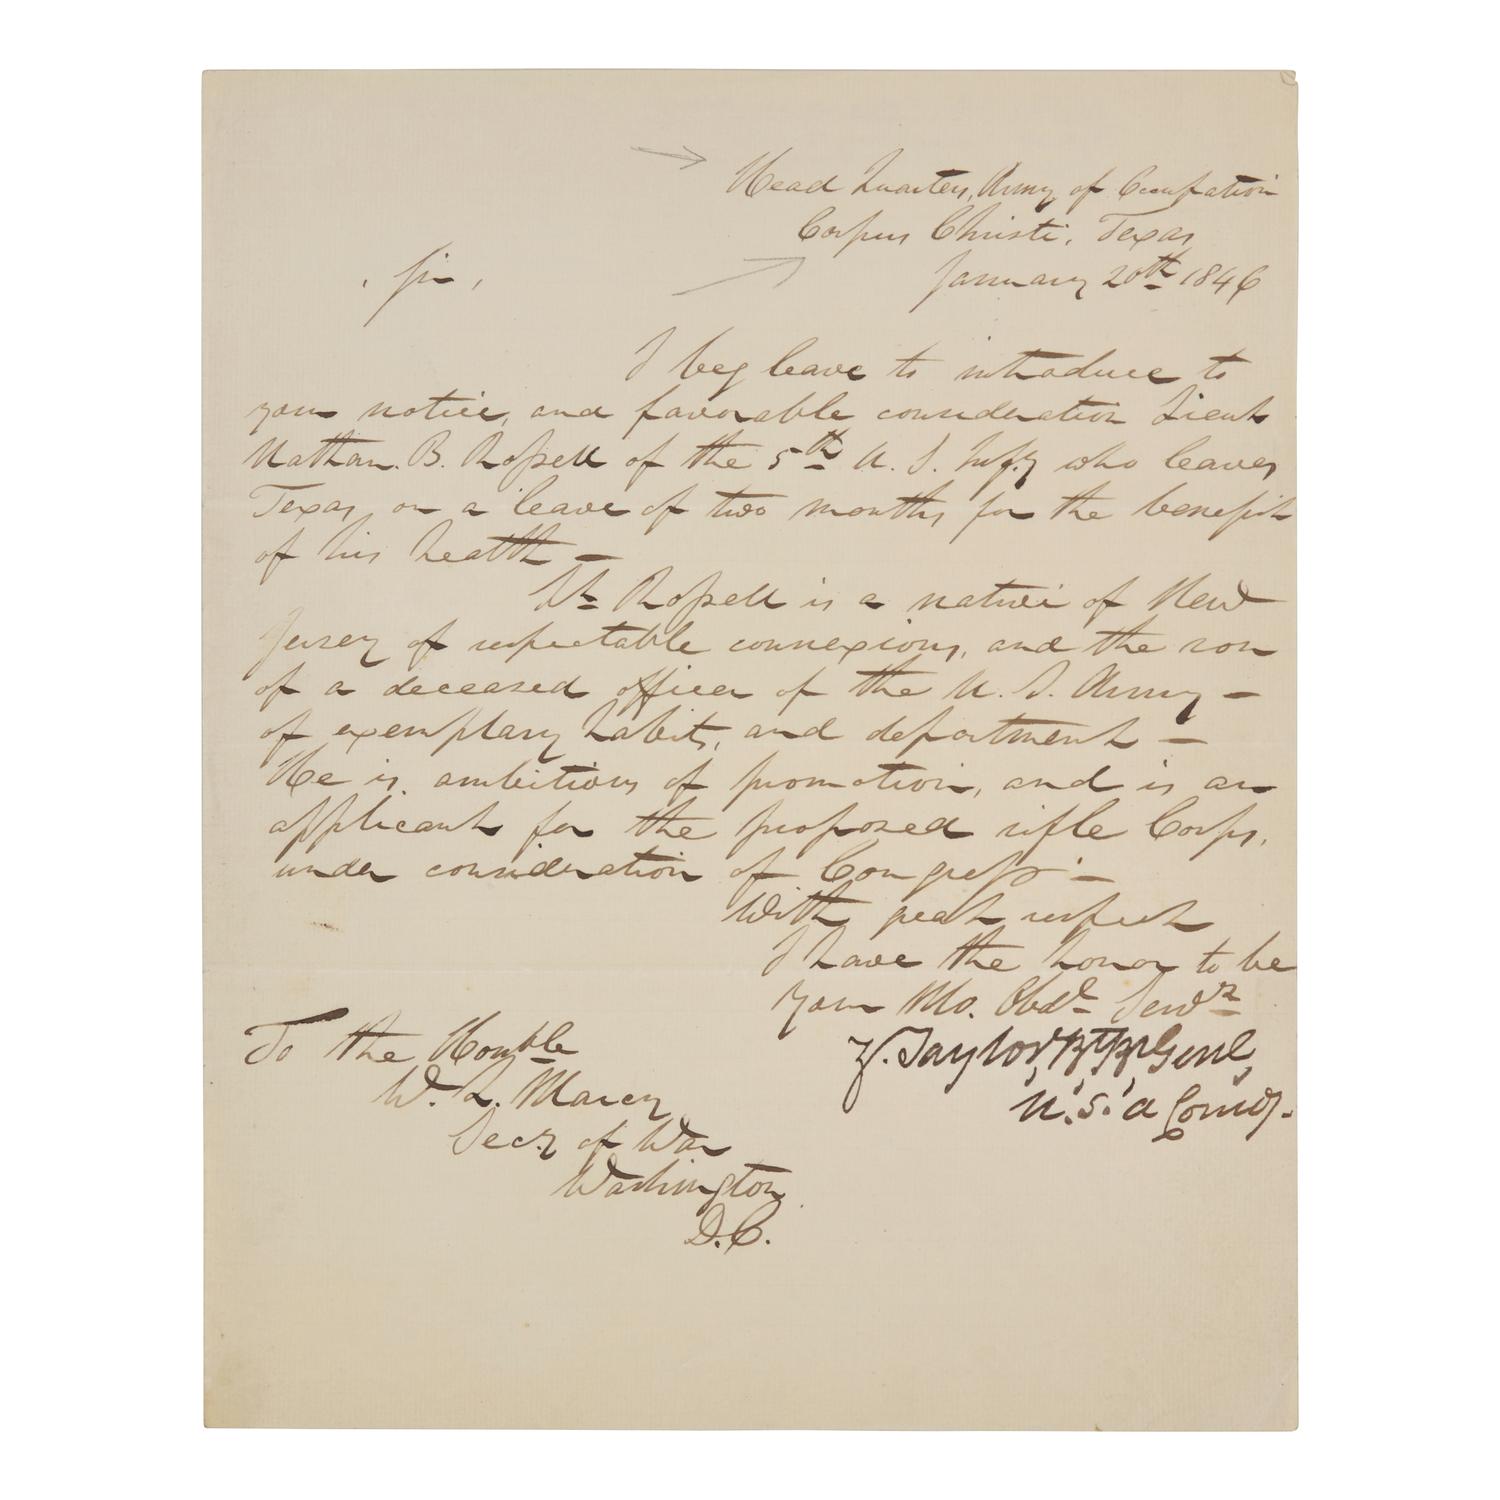 Head Quarters, Army of Occupation
Corpus Christi, Texas
January 20th 1846
Sir,
I beg leave to introduce to
your notice, and favorable consideration Lieut
Nathan. B. Rossell of the 5th U. S. Infy who leaves
Texas, on a leave of two months for the benefit
of his health –
Lt Rossell is a native of New
Jersey of respectable connexions, and the son
of a deceased officer of the U. S. Army –
of exemplary habits, and deportment –
He is ambitious of promotion, and is an
applicant for the proposed rifle Corps,
under consideration of Congress –
With great respect
I have the honor to be
your Mo. Obdt Servt
Z. Taylor, Bt Br Genl,
U. S. A Comdg.
To the Honble
W. L. Marcy
Secy of War
Washington
D.C.